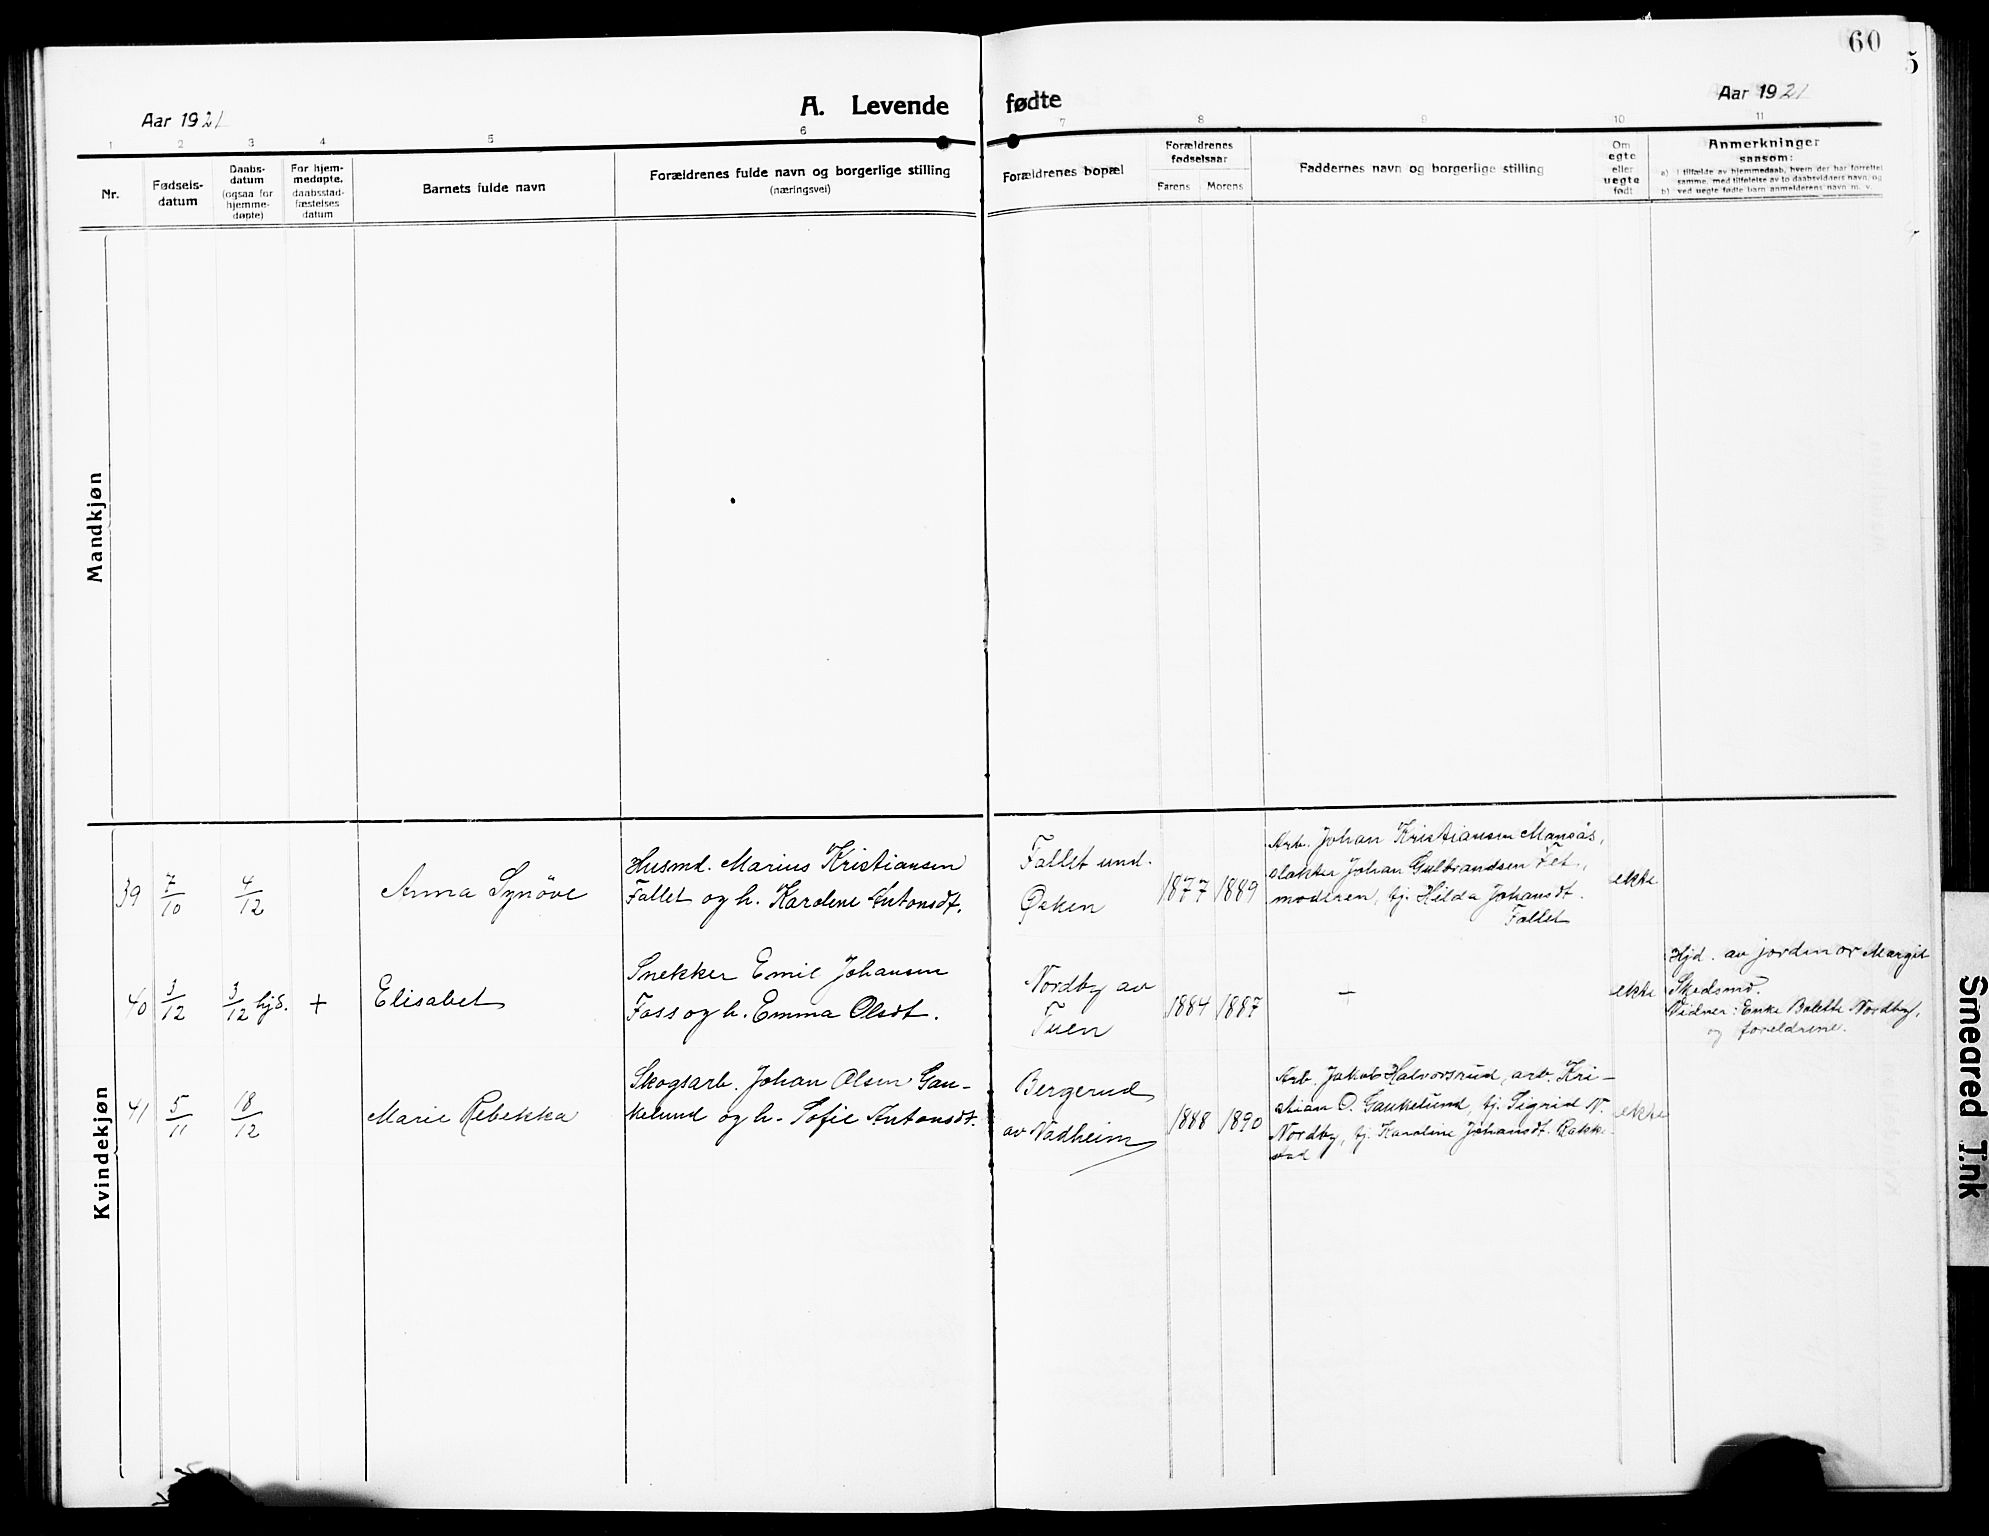 60
5
Aar 1921
A. Levende fødte
Aar 1921
1 2 3 4 5 6 7 8 9 10 11
Nr.
Fødsels-
datum
Daabs-
datum
(ogsaa for
hjemme-
døpte)
For hjem-
medøpte,
daabsstad-
fæstelses
datum
Barnets fulde navn
Forældrenes fulde navn og borgerlige stilling
(næringsvei)
Forældrenes bopæl
Forældrenes
fødselsaar
Farens Morens
Faddernes navn og borgerlige stilling
Om
egte
eller
uegte
født
Anmerkninger
saasom:
a) i tilfælde av hjemmedaab, hvem der har forrettet
samme, med tilføielse av to daabsvidners navn, og
b) ved uegte fødte barn anmelderens navn m. v.
Mandkjøn
Kvindekjøn
39
7/10
4/12
Anna Synöve
Husmd. Marius Kristiansen
Fallet og h. Karoline Antonsdt.
Fallet und.
Økern
1877 1889
Arb. Johan Kristiansen Mansås,
slakter Johan Gulbrandsen Fet,
moderen, tj. Hilda Johansdt.
Fallet
ekte
40
3/12
3/12 hjd.
+
Elisabet
Snekker Emil Johansen
Foss og h. Emma Olsdt.
Nordby av
Tuen
1884 1887
—
ekte
Hjd. av jordmor Margit
Skedsmo.
Vidner: Enke Bolette Nordby,
og foreldrene.
41
5/11
18/12
Marie Rebekka
Skogsarb. Johan Olsen Gau-
kelund og h. Sofie Antonsdt.
Bergerud
av Nadheim
1888 1890
Arb. Jakob Halvorsrud, arb. Kri-
stian O. Gaukelund, tj. Sigrid N.
Nordby, tj. Karoline Johansdt. Rakke-
stad
ekte
Smeared Ink